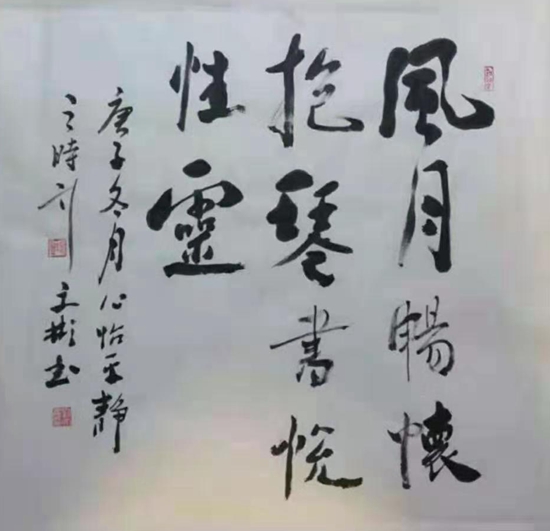 風月暢懷
抱琴書悦
性靈
庚子冬月心怡平靜
之時于
文彬书